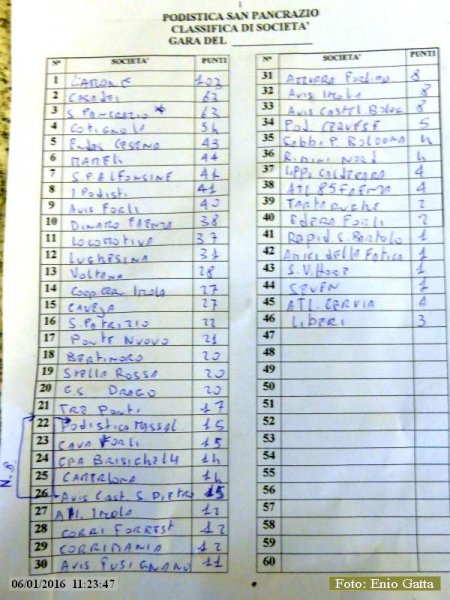 1
PODISTICA SAN PANCRAZIO
CLASSIFICA DI SOCIETA'
GARA DEL
N° SOCIETA' PUNTI
1 LAMONE 103
2 CASADEI 63
3 S PANCRAZIO * 63
4 COTIGNOLA 54
5 ENDAS CESENA 43
6 MAMELI 44
7 S.P ALFONSINE 41
8 I PODISTI 41
9 AVIS FORLI 40
10 DINAMO FAENZA 38
11 LOCOMOTIVA 37
12 LUGHESINA 31
13 VOLTANA 28
14 COOP CER. IMOLA 27
15 CAVEJA 27
16 S. PATRIZIO 22
17 PONTE NUOVO 21
18 BERTINORO 20
19 STELLA ROSSA 20
20 G.S. DRAGO 20
21 TRE PONTI 17
22 PODISTICA MASSAL. 15
23 CAVA FORLI 15
24 CPA BRISIGHELLA 14
25 14
26 AVIS CAST. S. PIETRO 15
27 ATL. IMOLA 12
28 CORRI FORREST 12
29 CORRIMANIA 12
30 AVIS FUSIGNANO 11
N.B
31 AZZURRA 8
32 AVIS IMOLA 8
33 AVIS CASTEL BOLOG. 8
34 POD. CERVESE 5
35 GABBI P. BOLOGNA 4
36 RIMINI NORD 4
37 CALDERARA 4
38 ATL. 85 FAENZA 4
39 TARTARUGHE 2
40 EDERA FORLI 2
41 RAPID S. BARTOLO 1
42 AMICI DELLA FATICA 1
43 S. V. 1
44 SEVEN 1
45 ATL. CERVIA
46 LIBERI 3
47
48
49
50
51
52
53
54
55
56
57
58
59
60
06/01/2016 11:23:47
Foto: Enio Gatta